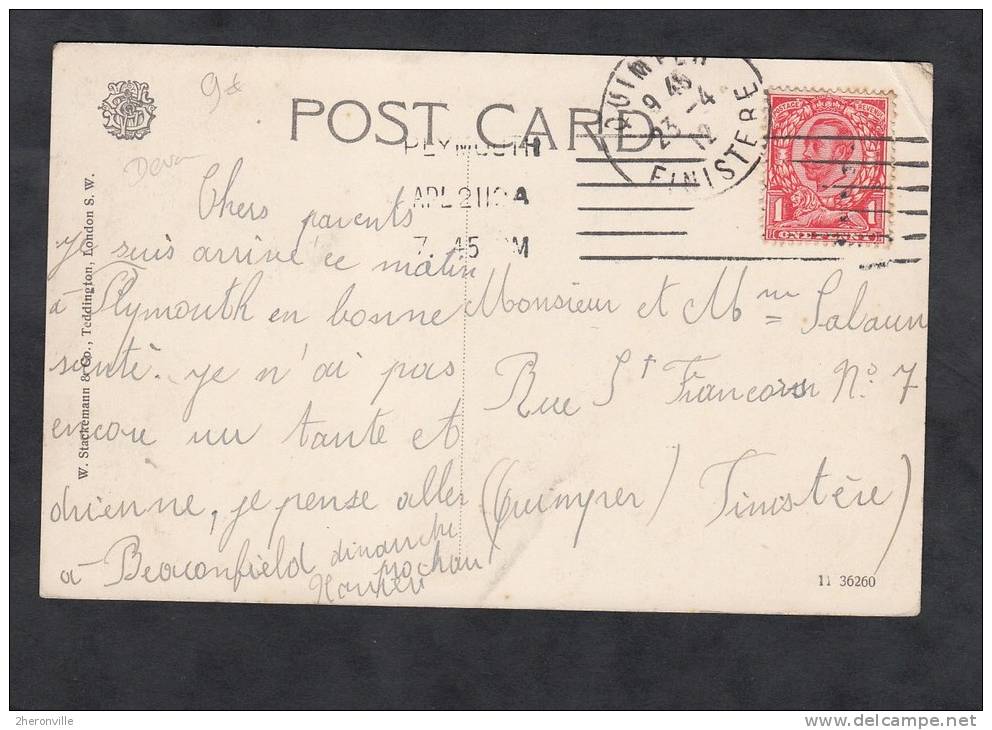 9€
POST CARD
QUIMPER
9 45
23 -4
12
FINISTERE
POSTAGE REVENUE
1 1
ONE PENNY
PLYMOUTH
APL 21 12 A
7. 45 PM
W. Stackemann & Co., Teddington, London S. W.
Chers parents
Je suis arrivé ce matin
à Plymouth en bonne
santé. Je n'ai pas
encore vu tante et
drienne, je pense aller
à Beaconfield dimanche
prochain
Monsieur et Mme Salaun
Rue St François No 7
(Quimper) Finistère)
11 36260
2heronville
delcampe.net